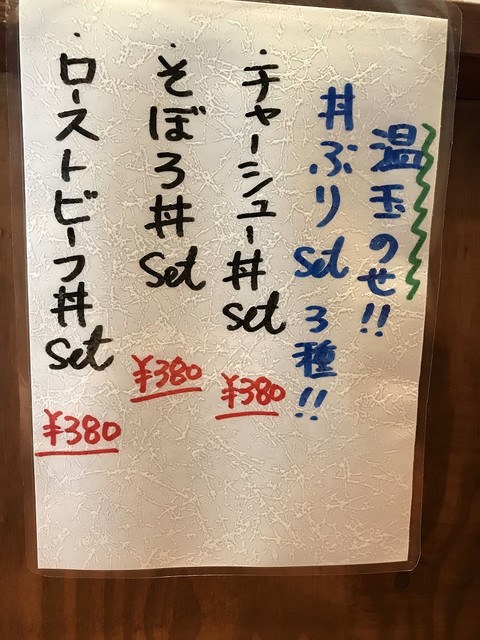 温玉のせ!!
丼ぶり set 3種!!
・チャーシュー丼 set
¥380
・そぼろ丼 set
¥380
・ローストビーフ丼 set
¥380